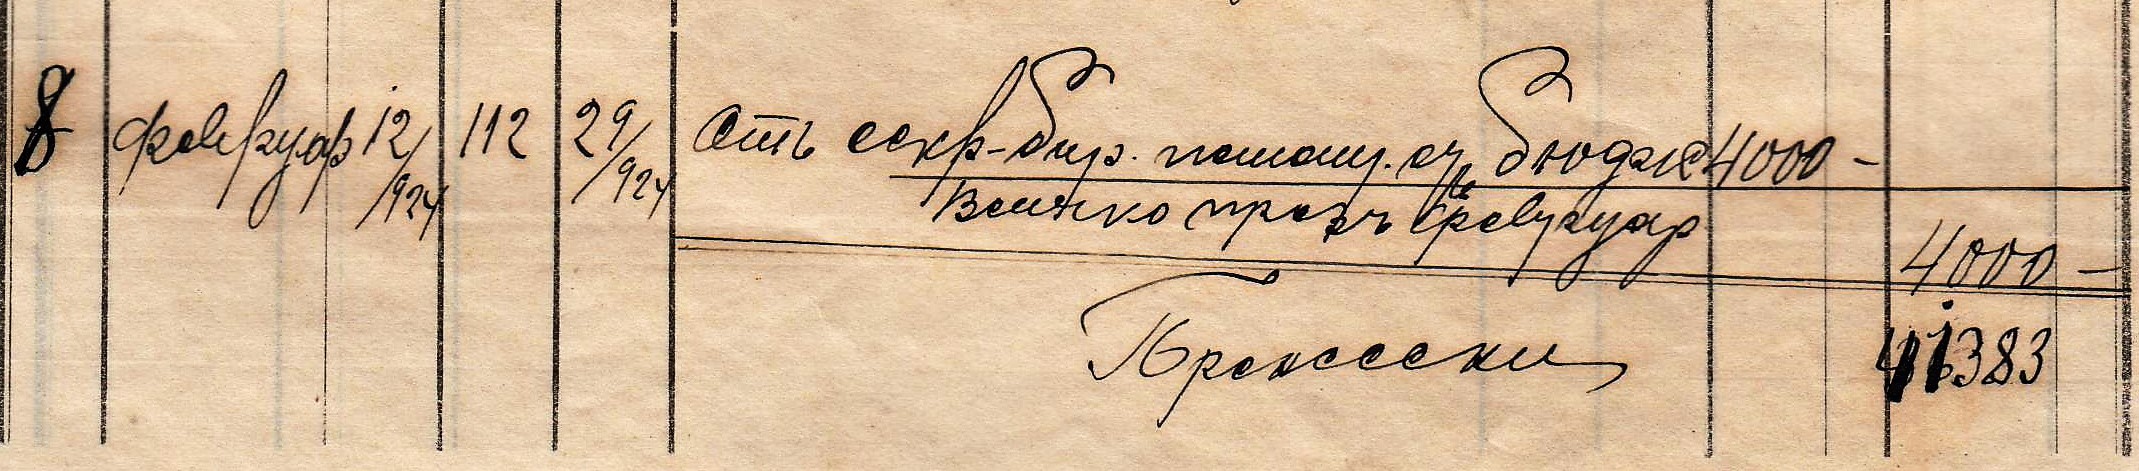 8 февруар 12/924 112 29/924 отъ секр-бир. помощ. съ бюдже 4000 –
Всичко презъ февруар
4000 –
383